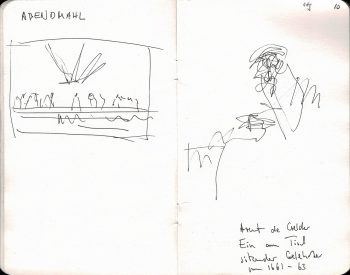 ABENDMAHL
10
Arent de Gelder
Ein am Tisch
sitzender Gelehrter
um 1661 - 63